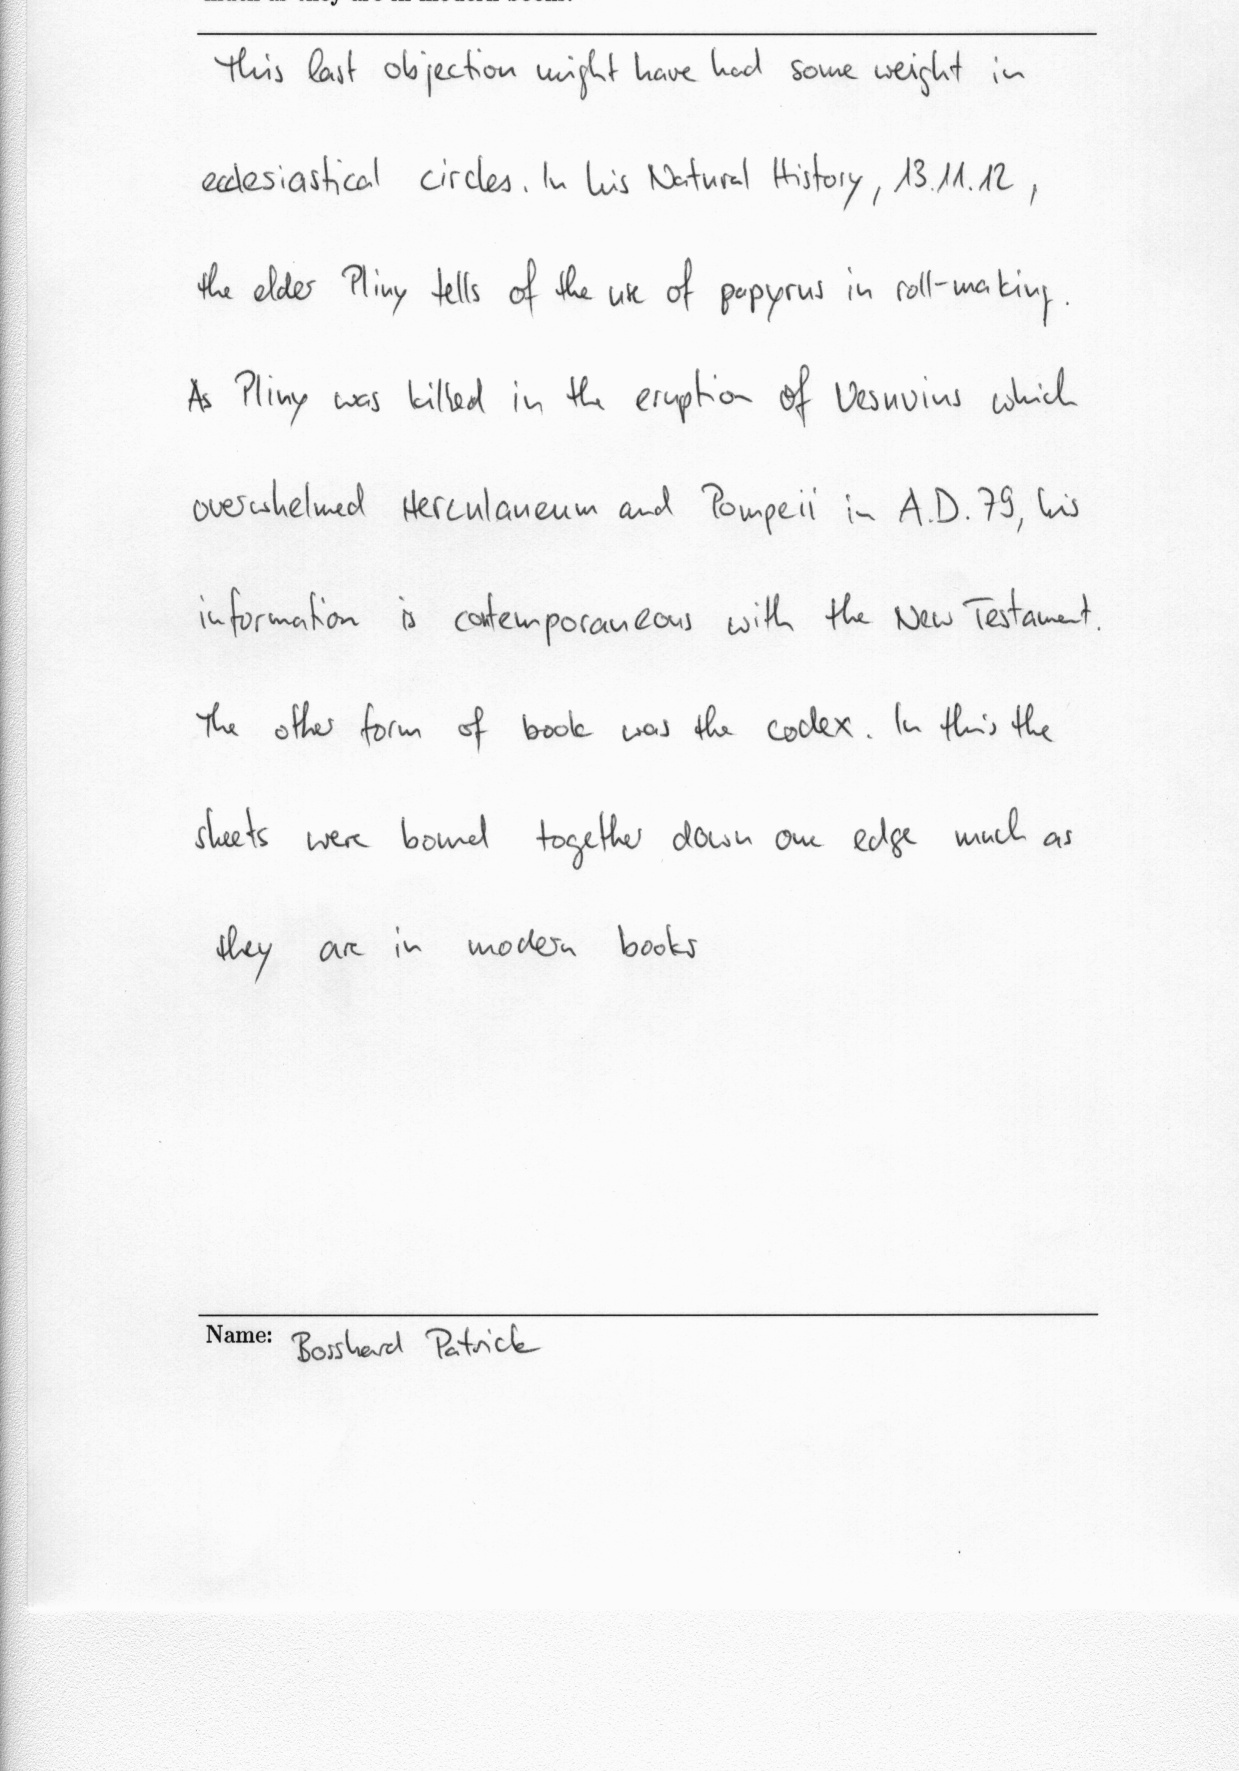 This last objection might have had some weight in
ecclesiastical circles. In his Natural History, 13.11.12,
the elder Pliny tells of the use of papyrus in roll-making.
As Pliny was killed in the eruption of Vesuvius which
overwhelmed Herculaneum and Pompeii in A.D. 79, his
information is contemporaneous with the New Testament.
The other form of book was the codex. In this the
sheets were bound together down one edge much as
they are in modern books
Name: Bosshard Patrick